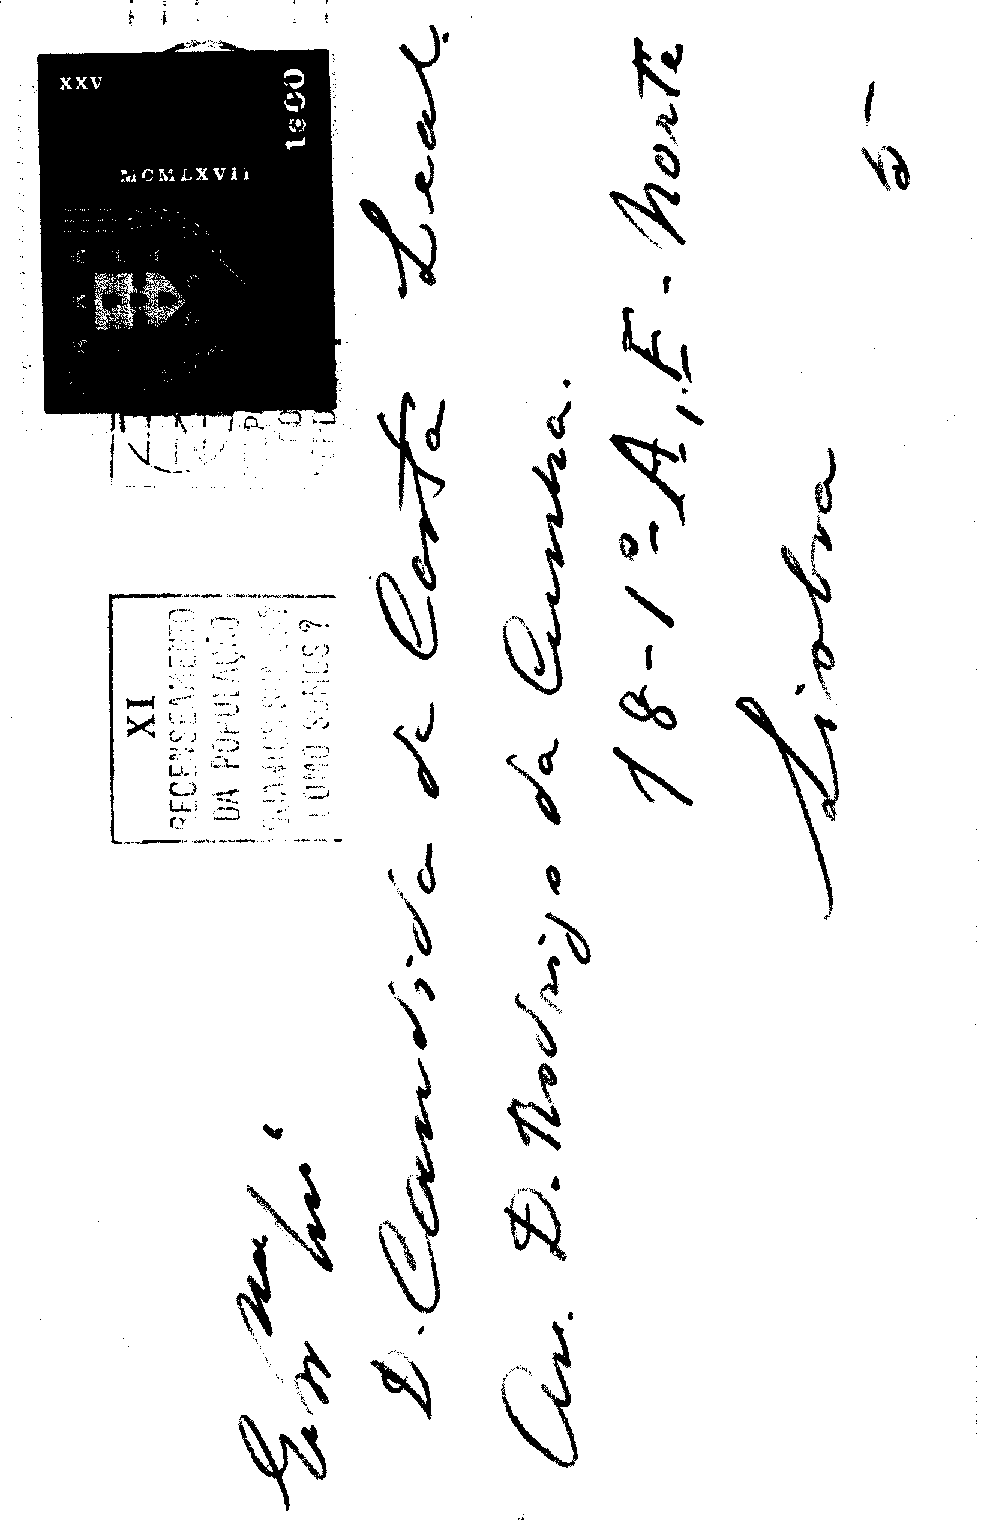 XXV
1$00
MCMLXVII
XI
RECENSEAMENTO
DA POPULAÇÃO
COMO SOMOS?
Exma
D. Candida da Costa Leal.
Av. D. Rodrigo da Cunha.
18-1º-A, E-Norte
Lisboa
5-